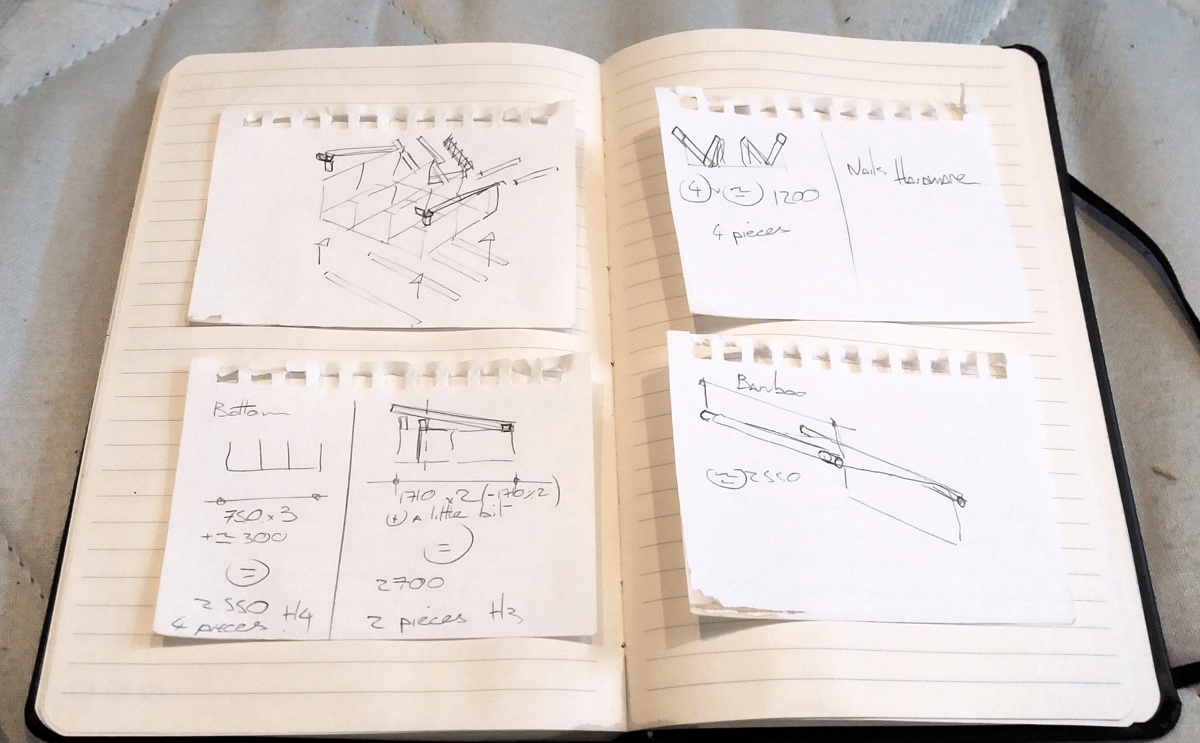 Bottom
750 x 3
+ ≃ 300
=
2550 H4
4 pieces
1710 x 2 (-170x2)
+ A little bit
=
2700
2 pieces H3
4 ≃ 1200
4 pieces
Nails Hardware
Bamboo
≃ 2550